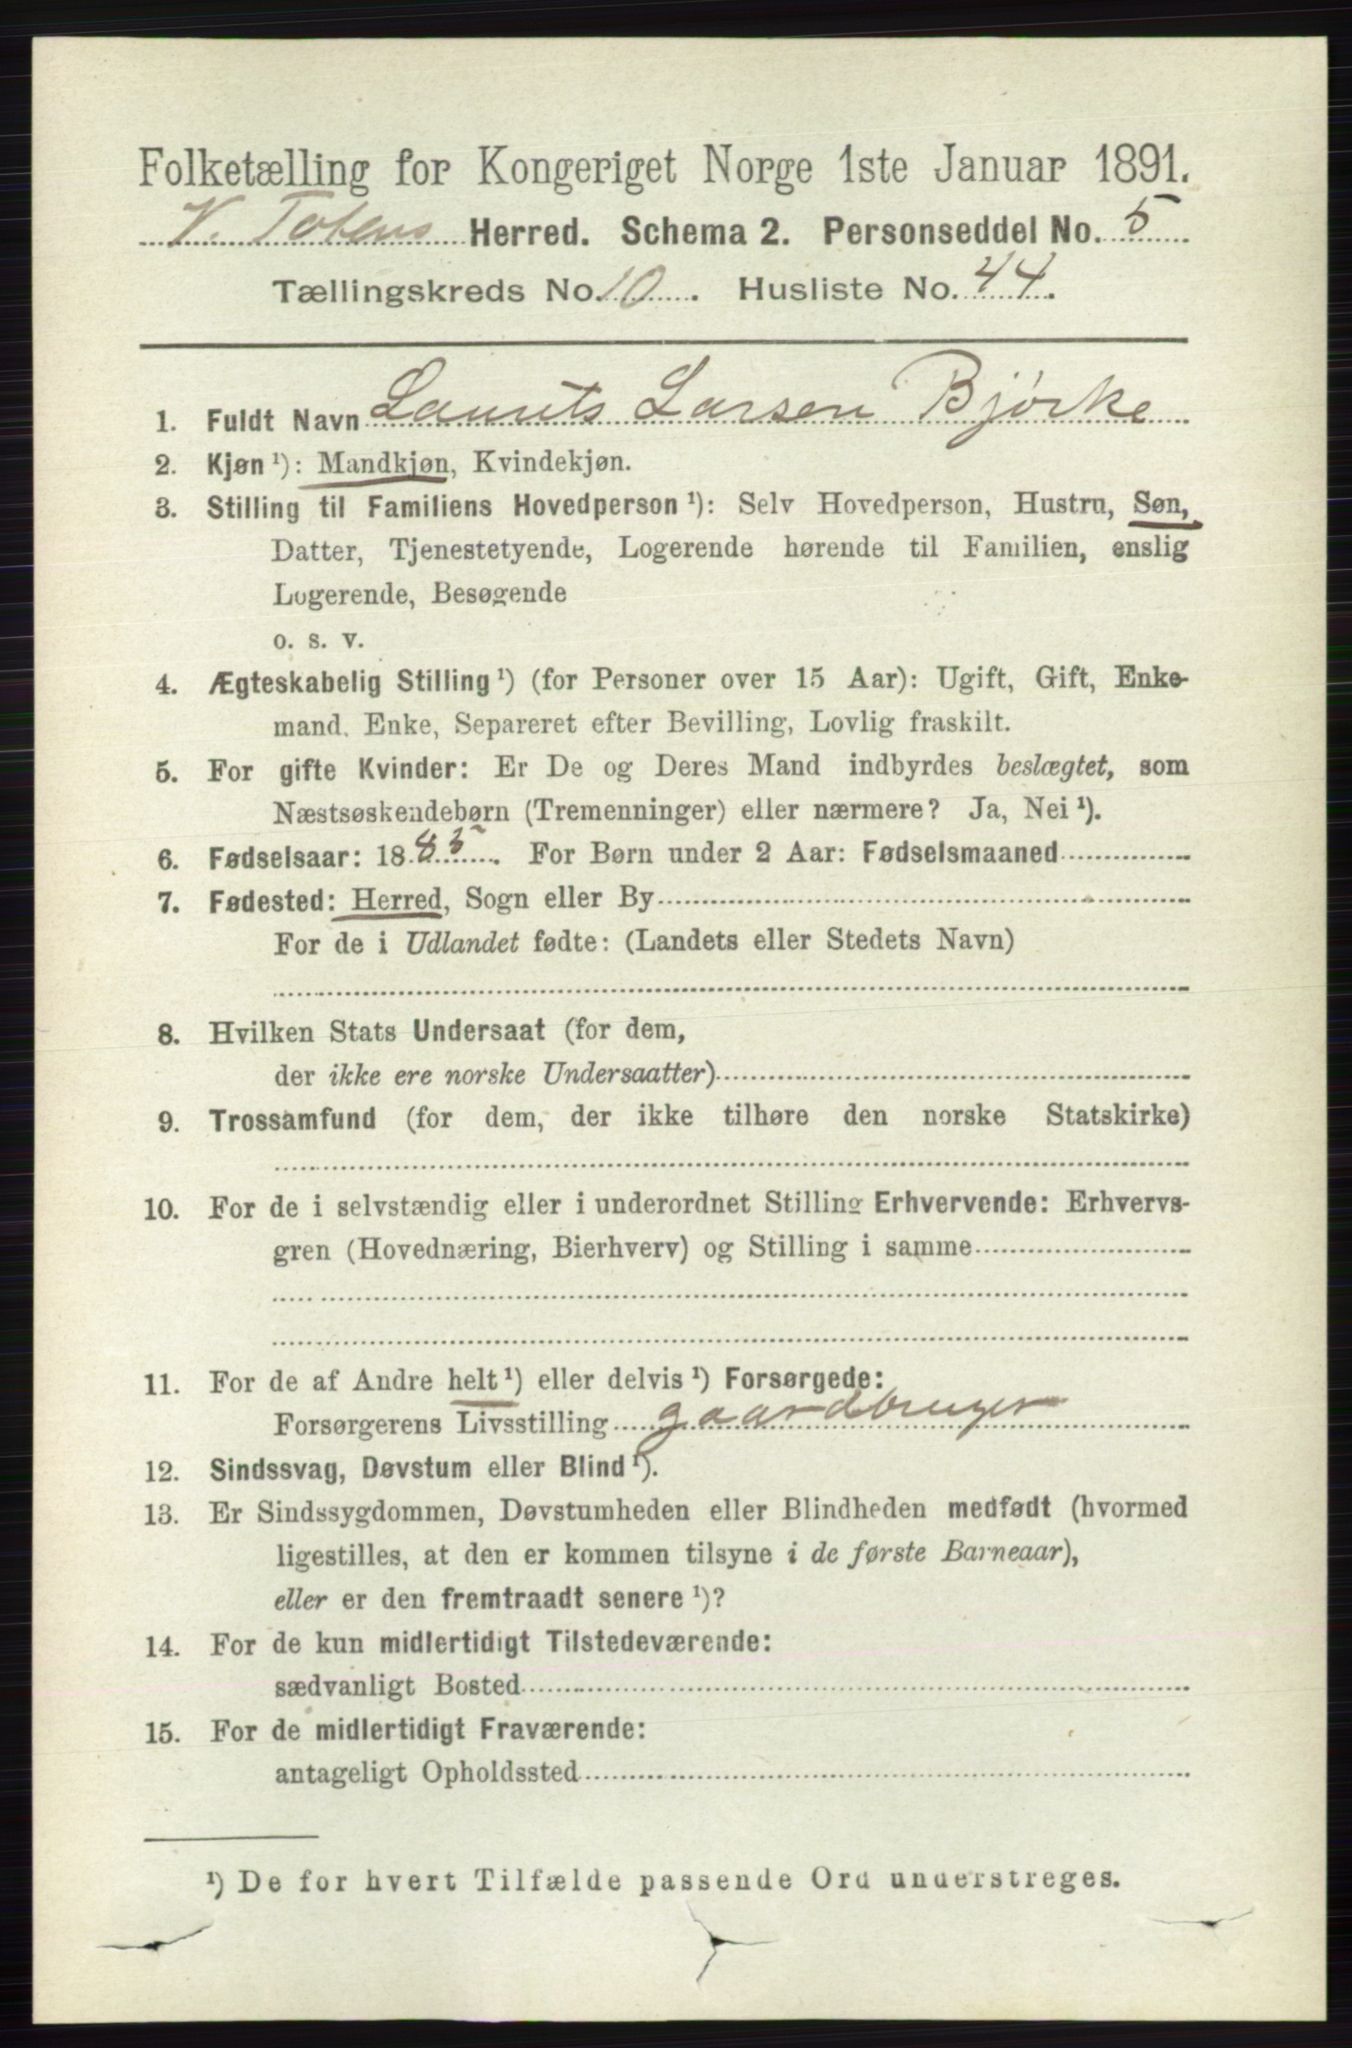 Folketælling for Kongeriget Norge 1ste Januar 1891.
V. Totens Herred. Schema 2. Personseddel No. 5
Tællingskreds No. 10. Husliste No. 44.
1. Fuldt Navn Laurits Larsen Bjørke
2. Kjøn ¹): Mandkjøn, Kvindekjøn.
3. Stilling til Familiens Hovedperson ¹): Selv Hovedperson, Hustru, Søn,
Datter, Tjenestetyende, Logerende hørende til Familien, enslig
Logerende, Besøgende
o. s. v.
4. Ægteskabelig Stilling ¹) (for Personer over 15 Aar): Ugift, Gift, Enke-
mand, Enke, Separeret efter Bevilling, Lovlig fraskilt.
5. For gifte Kvinder: Er De og Deres Mand indbyrdes beslægtet, som
Næstsøskendebørn (Tremenninger) eller nærmere? Ja, Nei ¹).
6. Fødselsaar: 1885. For Børn under 2 Aar: Fødselsmaaned
7. Fødested: Herred, Sogn eller By
For de i Udlandet fødte: (Landets eller Stedets Navn)
8. Hvilken Stats Undersaat (for dem,
der ikke ere norske Undersaatter)
9. Trossamfund (for dem, der ikke tilhøre den norske Statskirke)
10. For de i selvstændig eller i underordnet Stilling Erhvervende: Erhvervs-
gren (Hovednæring, Bierhverv) og Stilling i samme
11. For de af Andre helt ¹) eller delvis ¹) Forsørgede:
Forsørgerens Livsstilling gaardbruger
12. Sindssvag, Døvstum eller Blind ¹).
13. Er Sindssygdommen, Døvstumheden eller Blindheden medfødt (hvormed
ligestilles, at den er kommen tilsyne i de første Barneaar),
eller er den fremtraadt senere ¹)?
14. For de kun midlertidigt Tilstedeværende:
sædvanligt Bosted
15. For de midlertidigt Fraværende:
antageligt Opholdssted
¹) De for hvert Tilfælde passende Ord understreges.